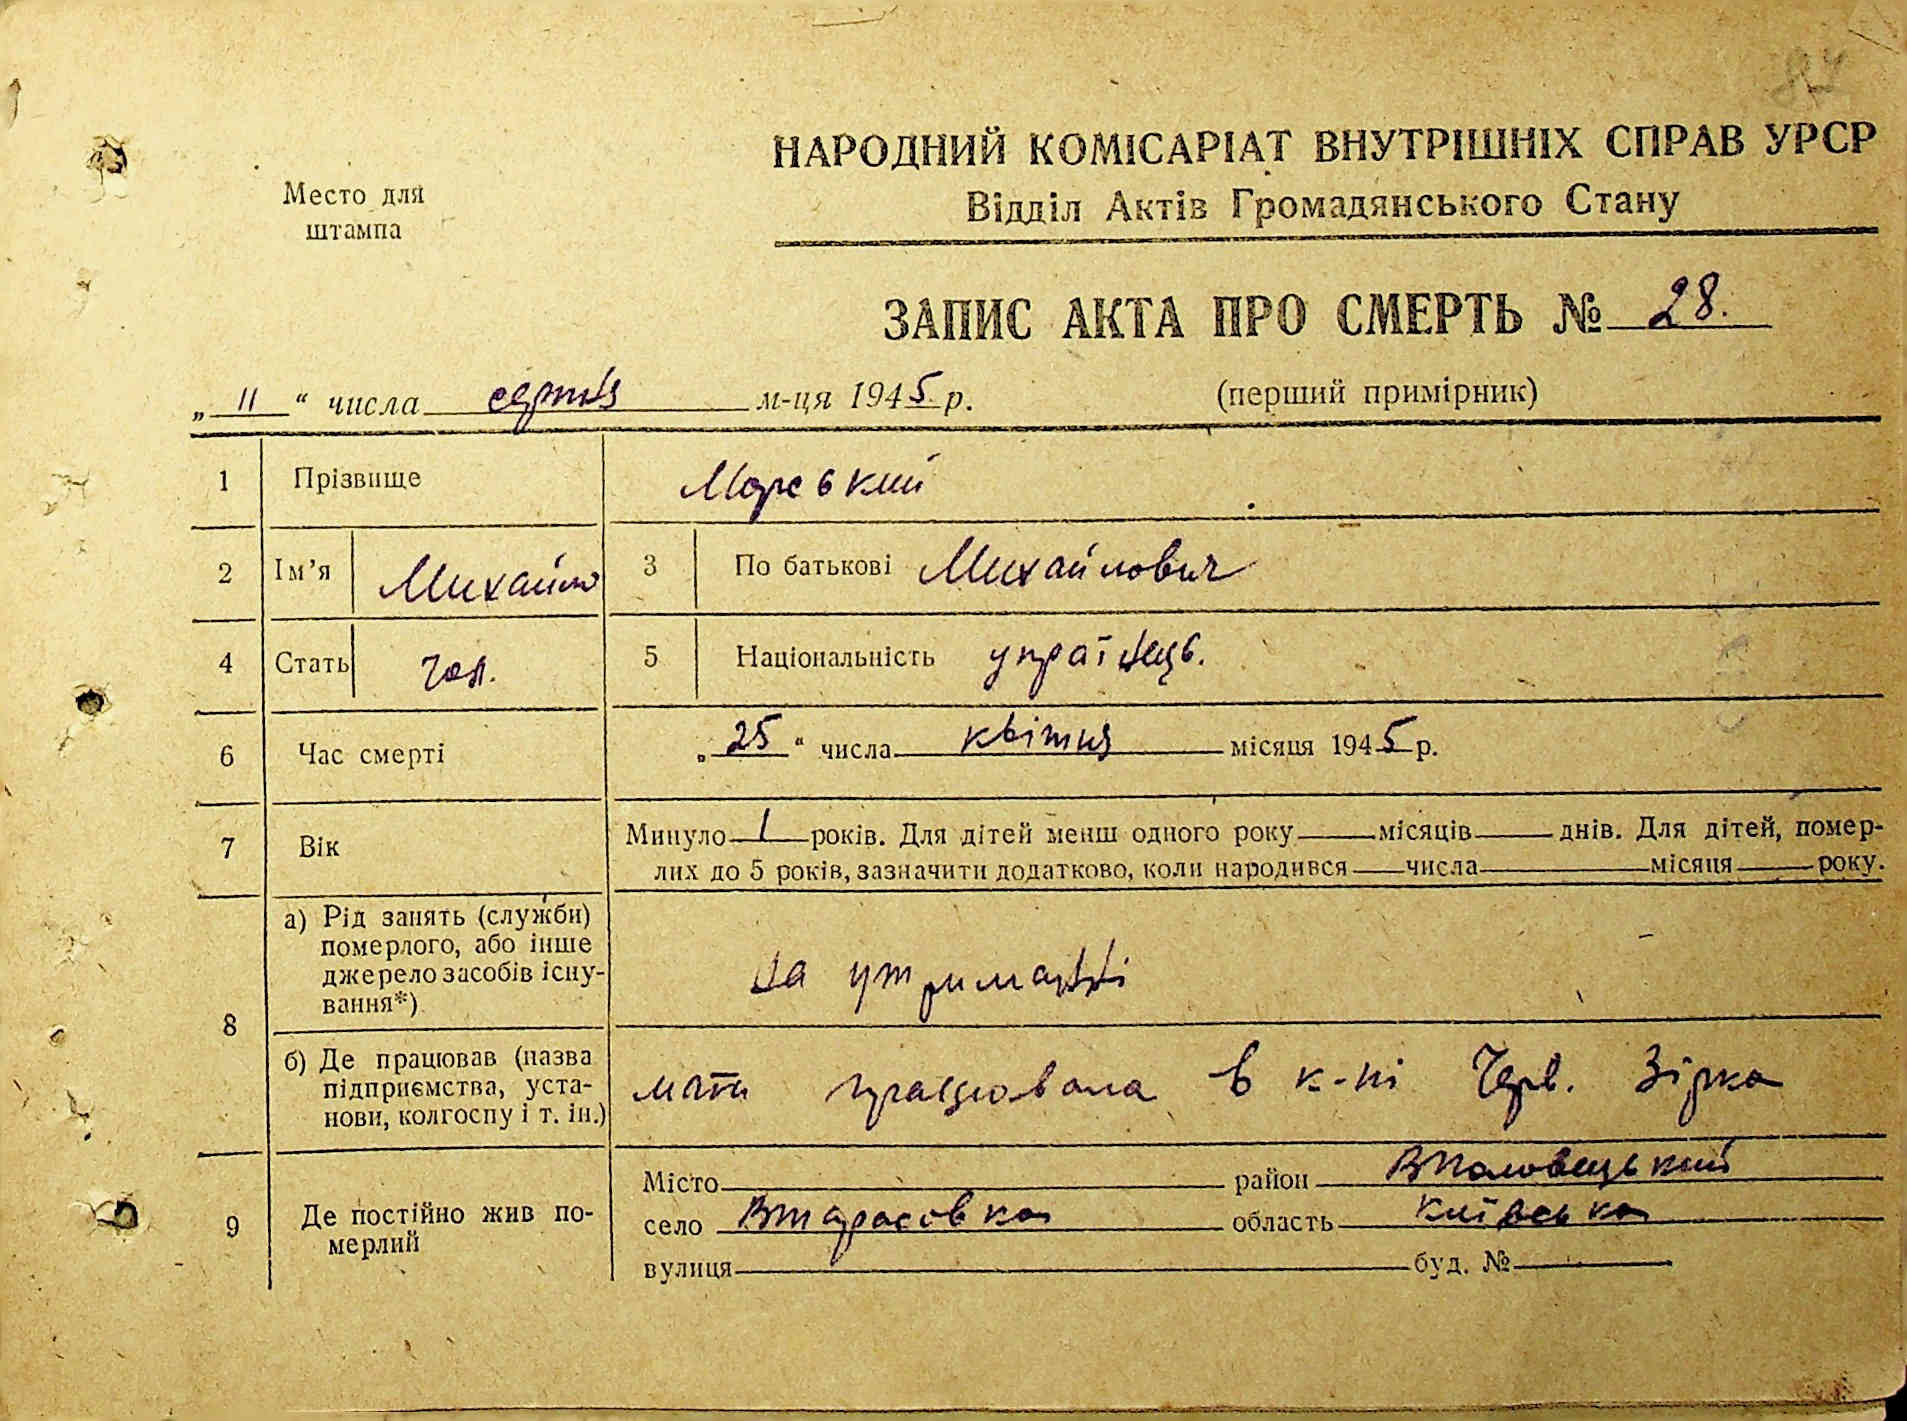 НАРОДНИЙ КОМІСАРІАТ ВНУТРІШНІХ СПРАВ УРСР
Место для
штампа
Відділ Актів Громадянського Стану
ЗАПИС АКТА ПРО СМЕРТЬ № 28.
„ 11 “ числа серпня м-ця 1945 р.
(перший примірник)
1 Прізвище Морський
2 Ім’я Михайло 3 По батькові Михайлович
4 Стать чол. 5 Національність українець.
6 Час смерті „ 25 “ числа квітня місяця 1945 р.
7 Вік Минуло 1 років. Для дітей менш одного року місяців днів. Для дітей, помер-
лих до 5 років, зазначити додатково, коли народився числа місяця року.
8 а) Рід занять (служби)
померлого, або інше
джерело засобів існу-
вання*)
на утриманні
б) Де працював (назва
підприємства, уста-
нови, колгоспу і т. ін.)
мати працювала в к-пі Черв. Зірка
9 Де постійно жив по-
мерлий
Місто район Вполовецький
село Втарасовка область Київська
вулиця буд. №